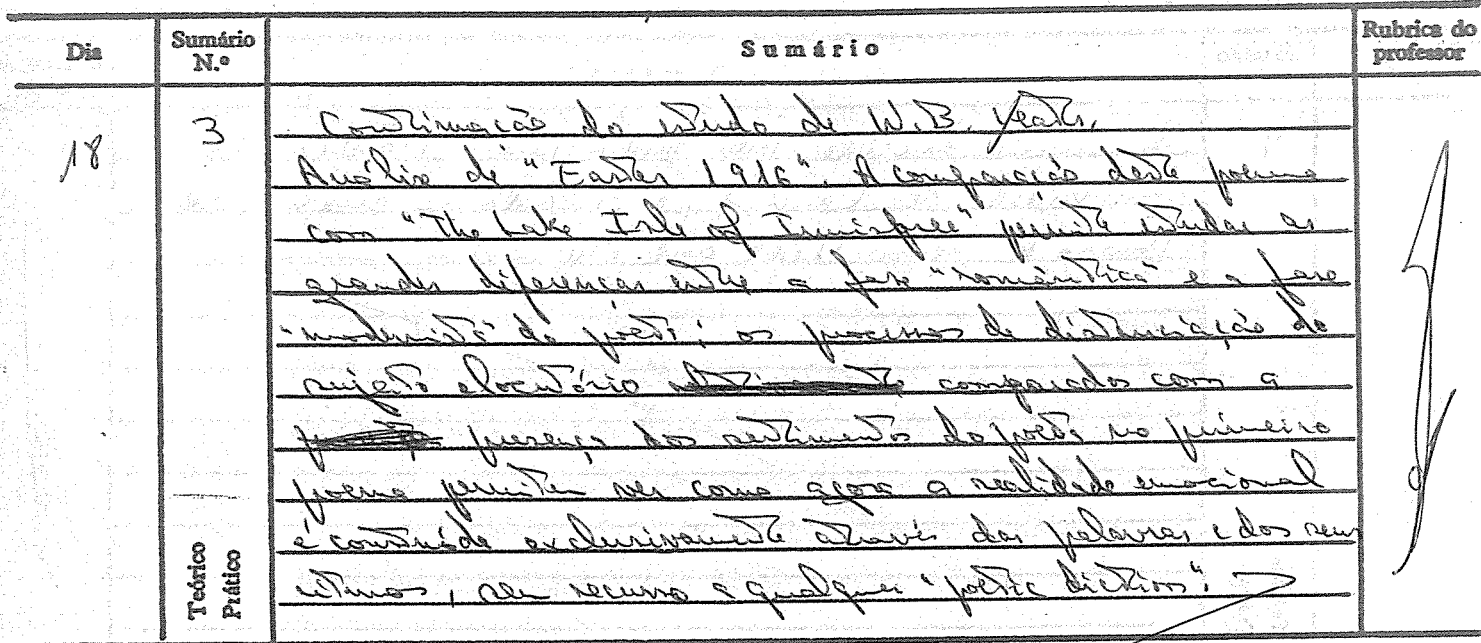 Dia Sumário N.º Sumário Rubrica do professor
18 3 Continuação do estudo de W.B. Yeats.
Análise de "Easter 1916". A comparação deste poema
com "The Lake Isle of Innisfree" permite estudar as
grandes diferenças entre a fase "romântica" e a fase
"modernista" do poeta; os processos de distanciação do
sujeito elocutório comparados com a
presença dos sentimentos do poeta no primeiro
poema permitem ver como agora a realidade emocional
é construída exclusivamente através das palavras e dos seus
ritmos, sem recurso a qualquer "poetic diction".
Teórico
Prático